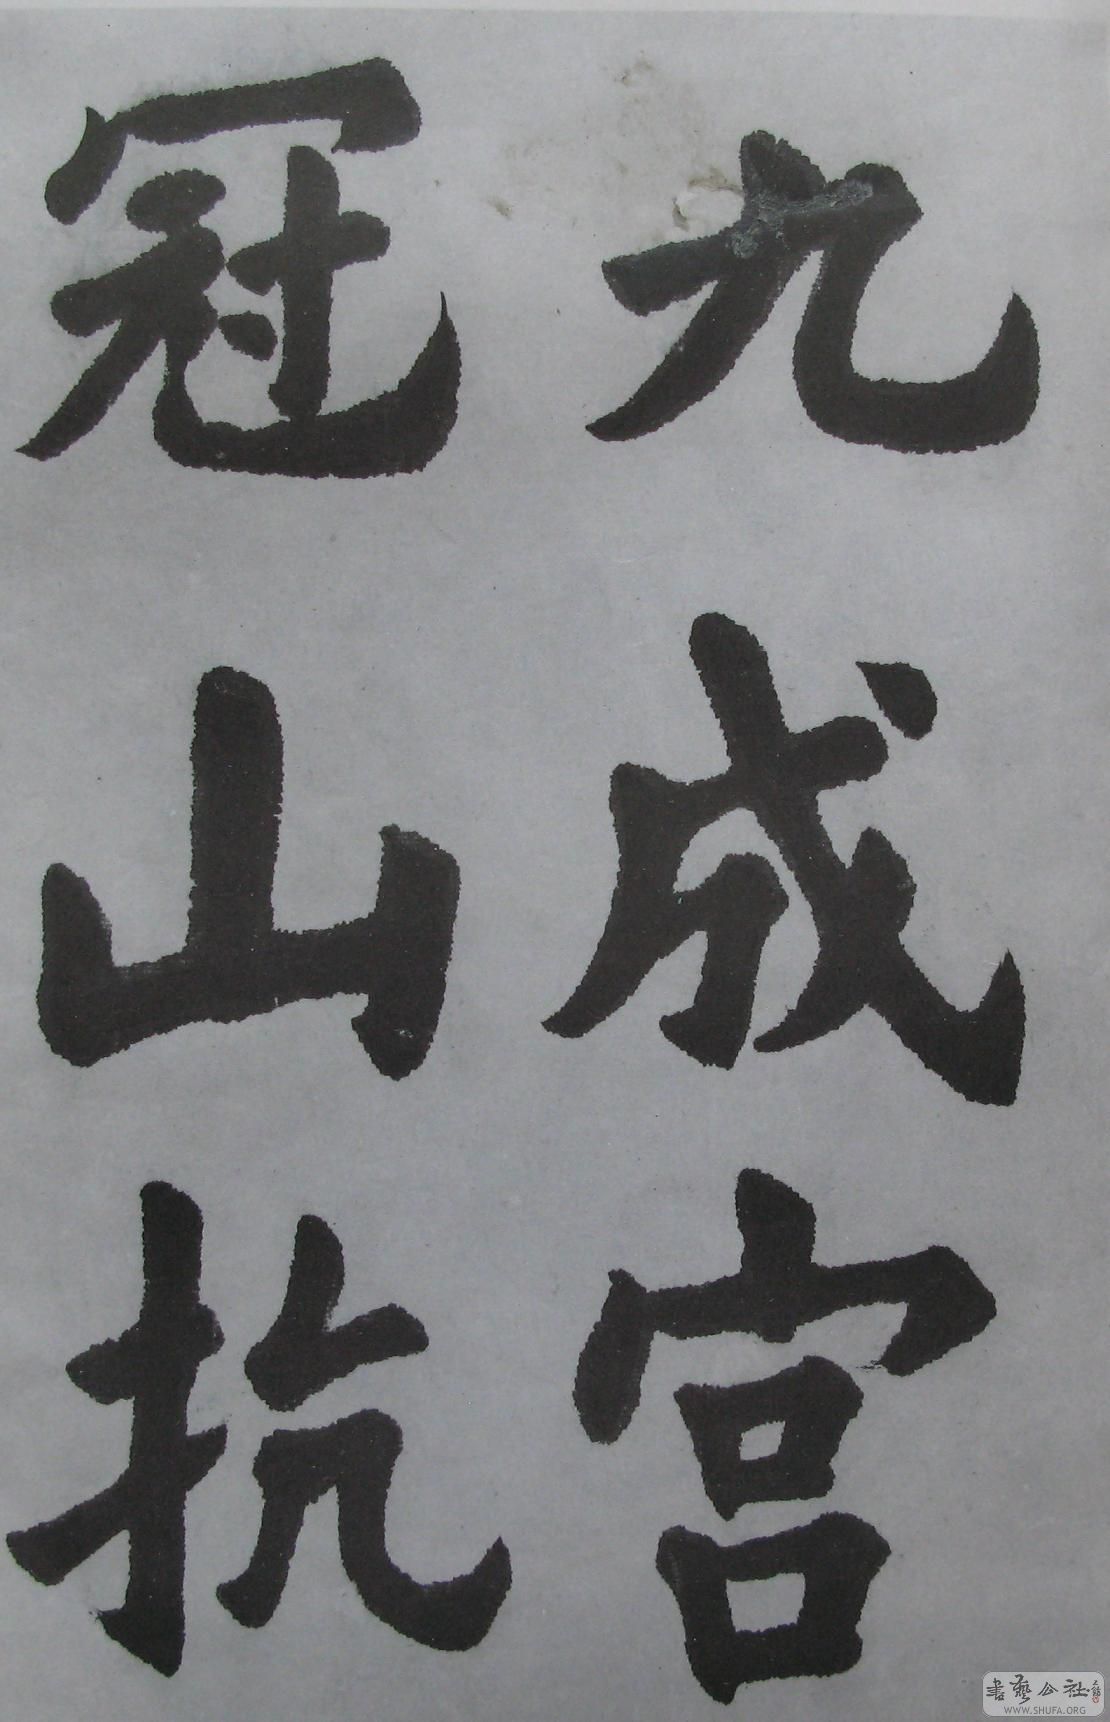 九成宫
冠山抗
書藝公社
WWW.SHUFA.ORG